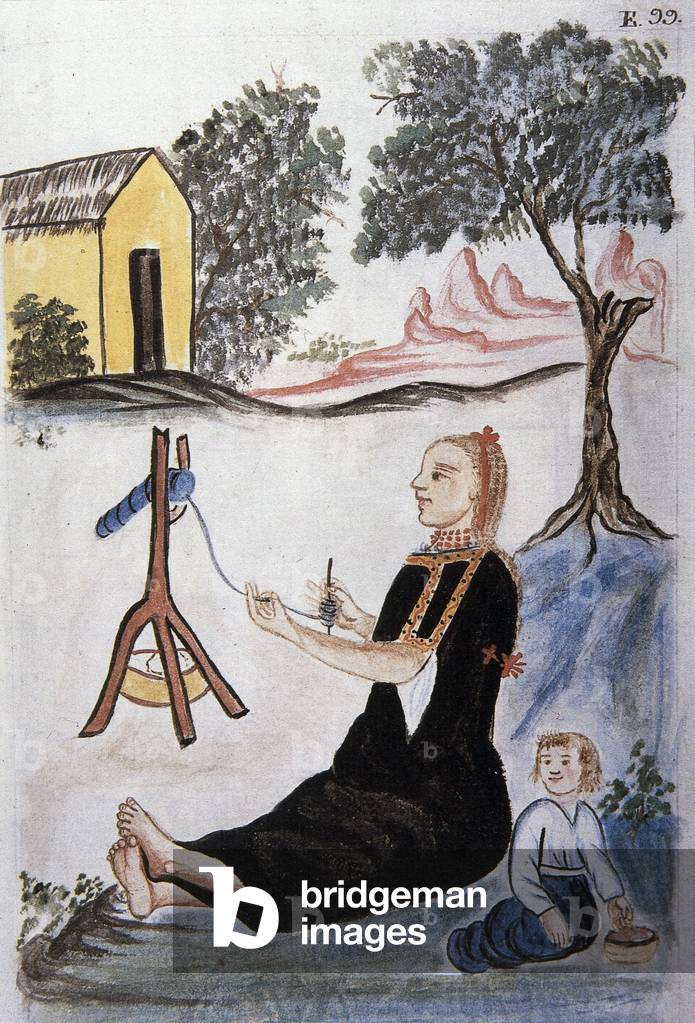 E. 99.
b
bridgeman
images